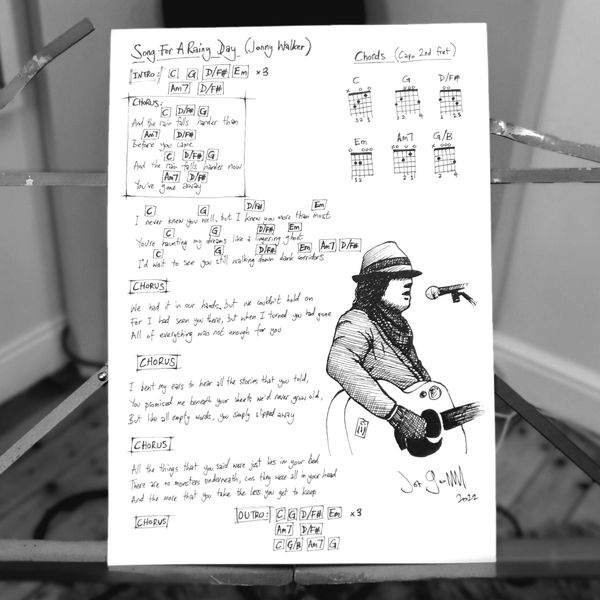 Song For A Rainy Day (Jonny Walker)
INTRO: C G D/F# Em x3
Am7 D/F#
CHORUS:
C D/F# G
And the rain falls harder than
Am7 D/F#
Before you came
C D/F# G
And the rain falls harder now
Am7 D/F#
You've gone away
C G D/F# Em
I never knew you well, but I knew you more than most
C G D/F# Em
You're haunting my dreams like a lingering ghost
C G D/F# Em Am7 D/F#
I'd wait to see you still walking down dark corridors
CHORUS
We had it in our hands, but we couldn't hold on
For I had seen you there, but when I turned you had gone
All of everything was not enough for you
CHORUS
I bent my ears to hear all the stories that you told,
You promised me beneath your sheets we'd never grow old,
But like all empty words, you simply slipped away
CHORUS
All the things that you said were just lies in your bed
There are no monsters underneath, cos they were all in your head
And the more that you take the less you get to keep
CHORUS
OUTRO: C G D/F# Em x3
Am7 D/F#
C G/B Am7 G
Chords (Capo 2nd fret)
C G D/F#
x o o
o o o
o o
3 2 1
3 2 4
Em Am7 G/B
2022